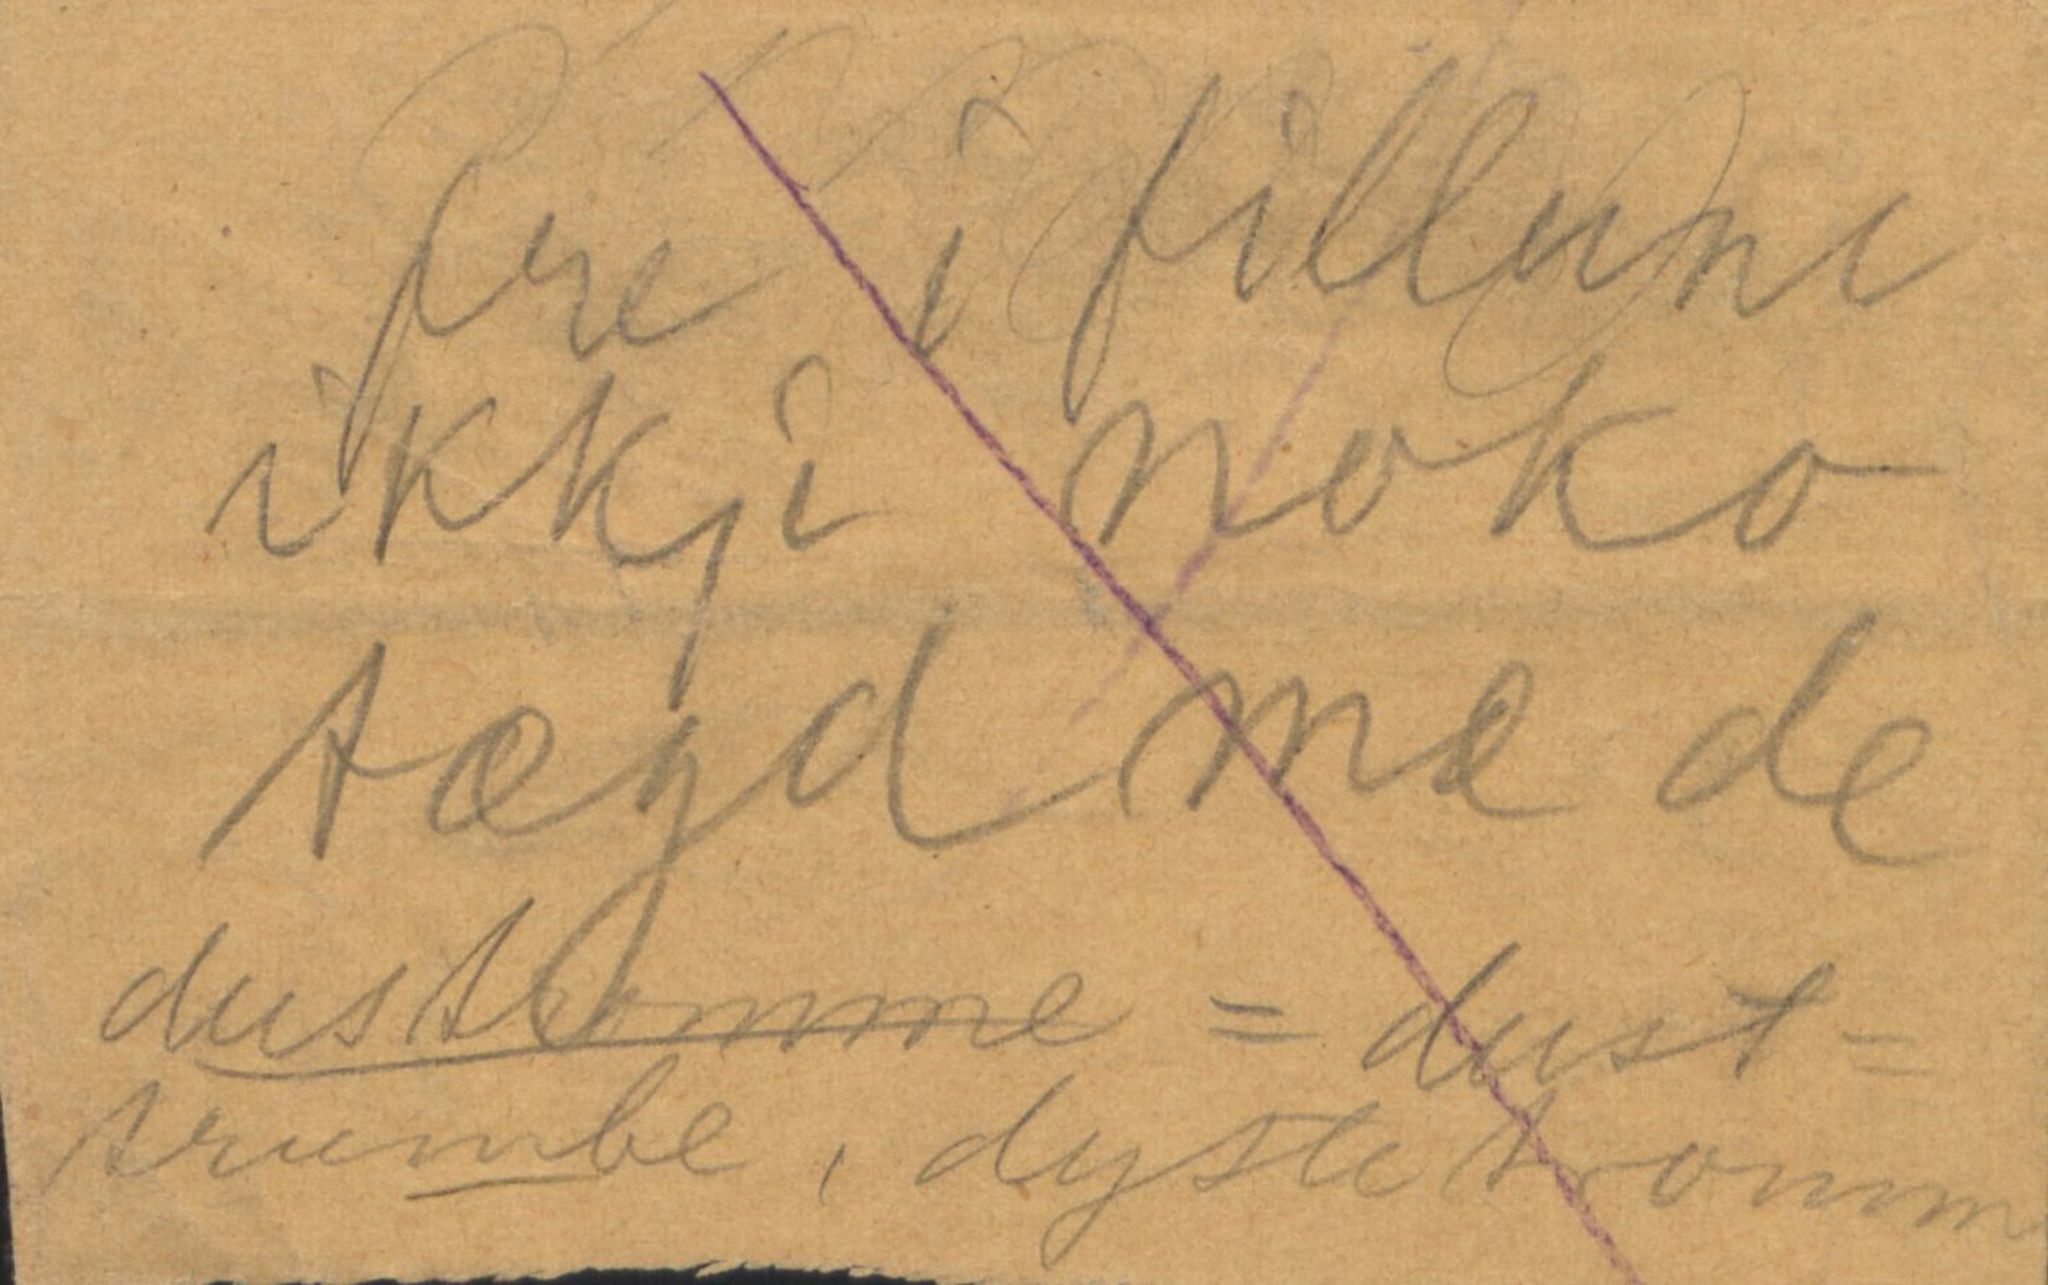 fre i fillune
ikkji noko
tægd me de
dustromme = dust=
trumbe, dystetromm